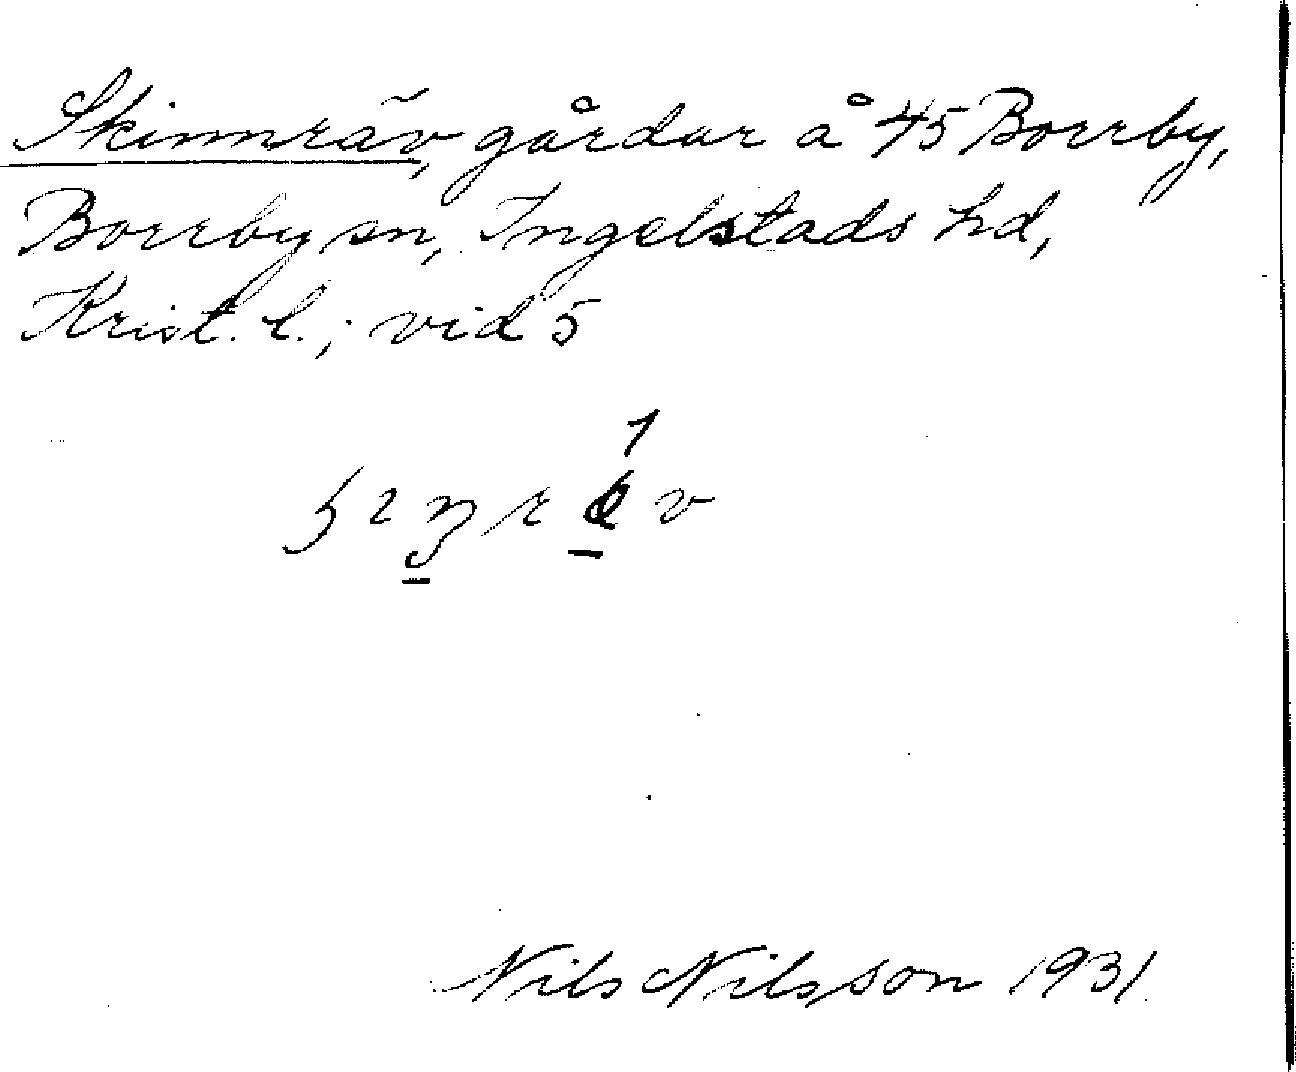 Skinnräv, gårdar å 45 Borrby,
Borrby sn, Ingelstads hd,
Krist. l.; vid 5
1
Nils Nilsson 1931